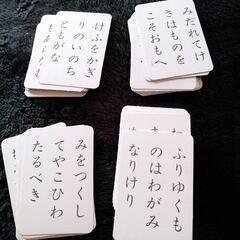 みだれてけ
さはものを
こそおもへ
けふをかぎ
りのいのち
ともがな
ふりゆくも
のはわがみ
なりけり
みをつくし
てやこひわ
たるべき